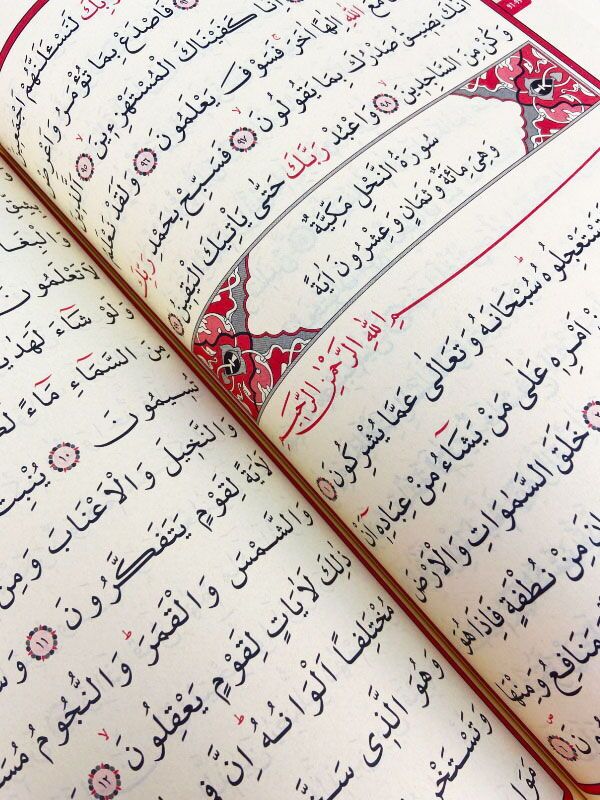 رَبِّكَ لَنَسْـَٔلَنَّهُمْ اَجْمَعِينَ
فَاصْدَعْ بِمَا تُؤْمَرُ وَاَعْرِضْ
اِنَّا كَفَيْنَاكَ الْمُسْتَهْزِءِينَ ٩٥
مَعَ اللّٰهِ اِلٰهًا اٰخَرَ فَسَوْفَ يَعْلَمُونَ ٩٦ وَلَقَدْ نَعْلَمُ
اَنَّكَ يَضِيقُ صَدْرُكَ بِمَا يَقُولُونَ ٩٧ فَسَبِّحْ بِحَمْدِ رَبِّكَ
وَكُنْ مِنَ السَّاجِدِينَ ٩٨ وَاعْبُدْ رَبَّكَ حَتّٰى يَاْتِيَكَ الْيَقِينُ ٩٩
سُورَةُ النَّحْلِ مَكِّيَّةٌ
وَهِيَ مِائَةٌ وَثَمَانٍ وَعِشْرُونَ اٰيَةً
اللّٰهِ الرَّحْمٰنِ الرَّحِيمِ
تَسْتَعْجِلُوهُ سُبْحَانَهُ وَتَعَالٰى عَمَّا يُشْرِكُونَ ١
اَمْرِهِ عَلٰى مَنْ يَشَاءُ مِنْ عِبَادِهِ اَنْ
خَلَقَ السَّمٰوَاتِ وَالْاَرْضَ
مِنْ نُطْفَةٍ فَاِذَا هُوَ
وَمَنَافِعُ وَمِنْهَا
لَا تَعْلَمُونَ
وَلَوْ شَاءَ لَهَدٰي
مِنَ السَّمَاءِ مَاءً
تُسِيمُونَ ١٠ يُنْبِتُ
وَالنَّخِيلَ وَالْاَعْنَابَ وَمِنْ
لَاٰيَةً لِقَوْمٍ يَتَفَكَّرُونَ ١١
وَالشَّمْسَ وَالْقَمَرَ وَالنُّجُومُ
ذٰلِكَ لَاٰيَاتٍ لِقَوْمٍ يَعْقِلُونَ ١٢
مُخْتَلِفًا اَلْوَانُهُ اِنَّ
وَهُوَ الَّذِى